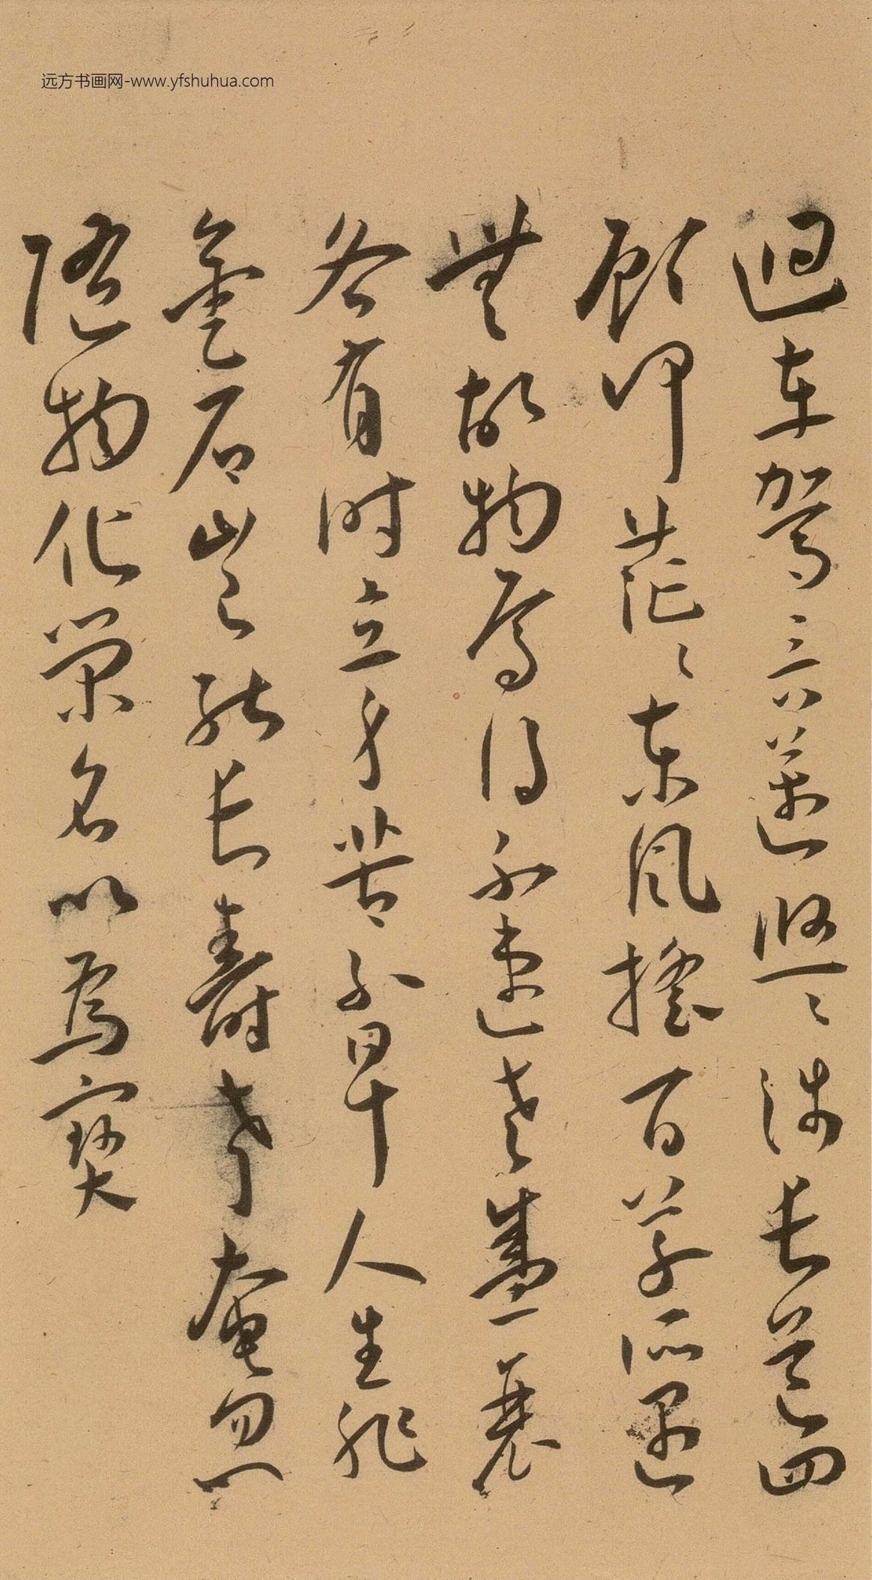 远方书画网-www.yfshuhua.com
迴车驾言邁悠〻涉长道四
顾仰茫〻东风摇百草所遇
無故物焉得不速老盛一衰
各有时立身苦不早人生非
金石岂能长寿考奄忽
随物化荣名以为寳